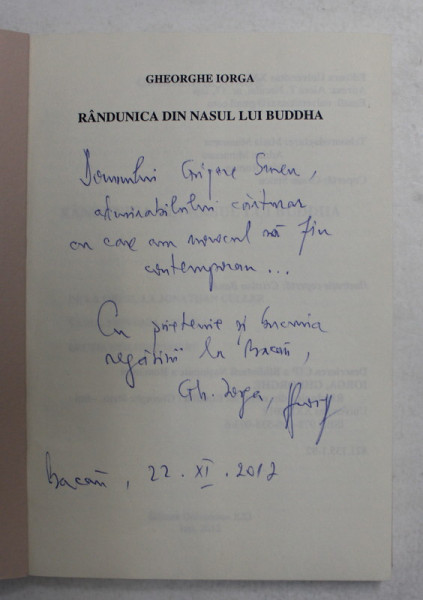 GHEORGHE IORGA
RÂNDUNICA DIN NASUL LUI BUDDHA
Domnului Grigore Smeu,
admirabilului cărturar
cu care am norocul să fiu
contemporan...
Cu prietenie și bucuria
regăsirii la Bacău,
Gh. Iorga,
Bacău, 22. XI. 2012